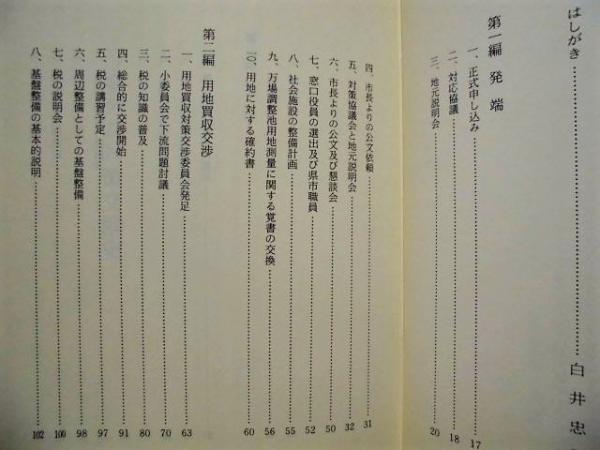 はしがき……白井忠
第一編 発端
一、正式申し込み……17
二、対応協議……18
三、地元説明会……20
四、市長よりの公文依頼……31
五、対策協議会と地元説明会……32
六、市長よりの公文及び懇談会……50
七、窓口役員の選出及び県市職員……52
八、社会施設の整備計画……55
九、万場調整池用地測量に関する覚書の交換……56
一〇、用地に対する確約書……60
第二編 用地買収交渉
一、用地買収対策交渉委員会発足……63
二、小委員会で下流問題討議……70
三、税の知識の普及……80
四、総合的に交渉開始……91
五、税の講習予定……97
六、周辺整備としての基盤整備……98
七、税の説明会……100
八、基盤整備の基本的説明……102